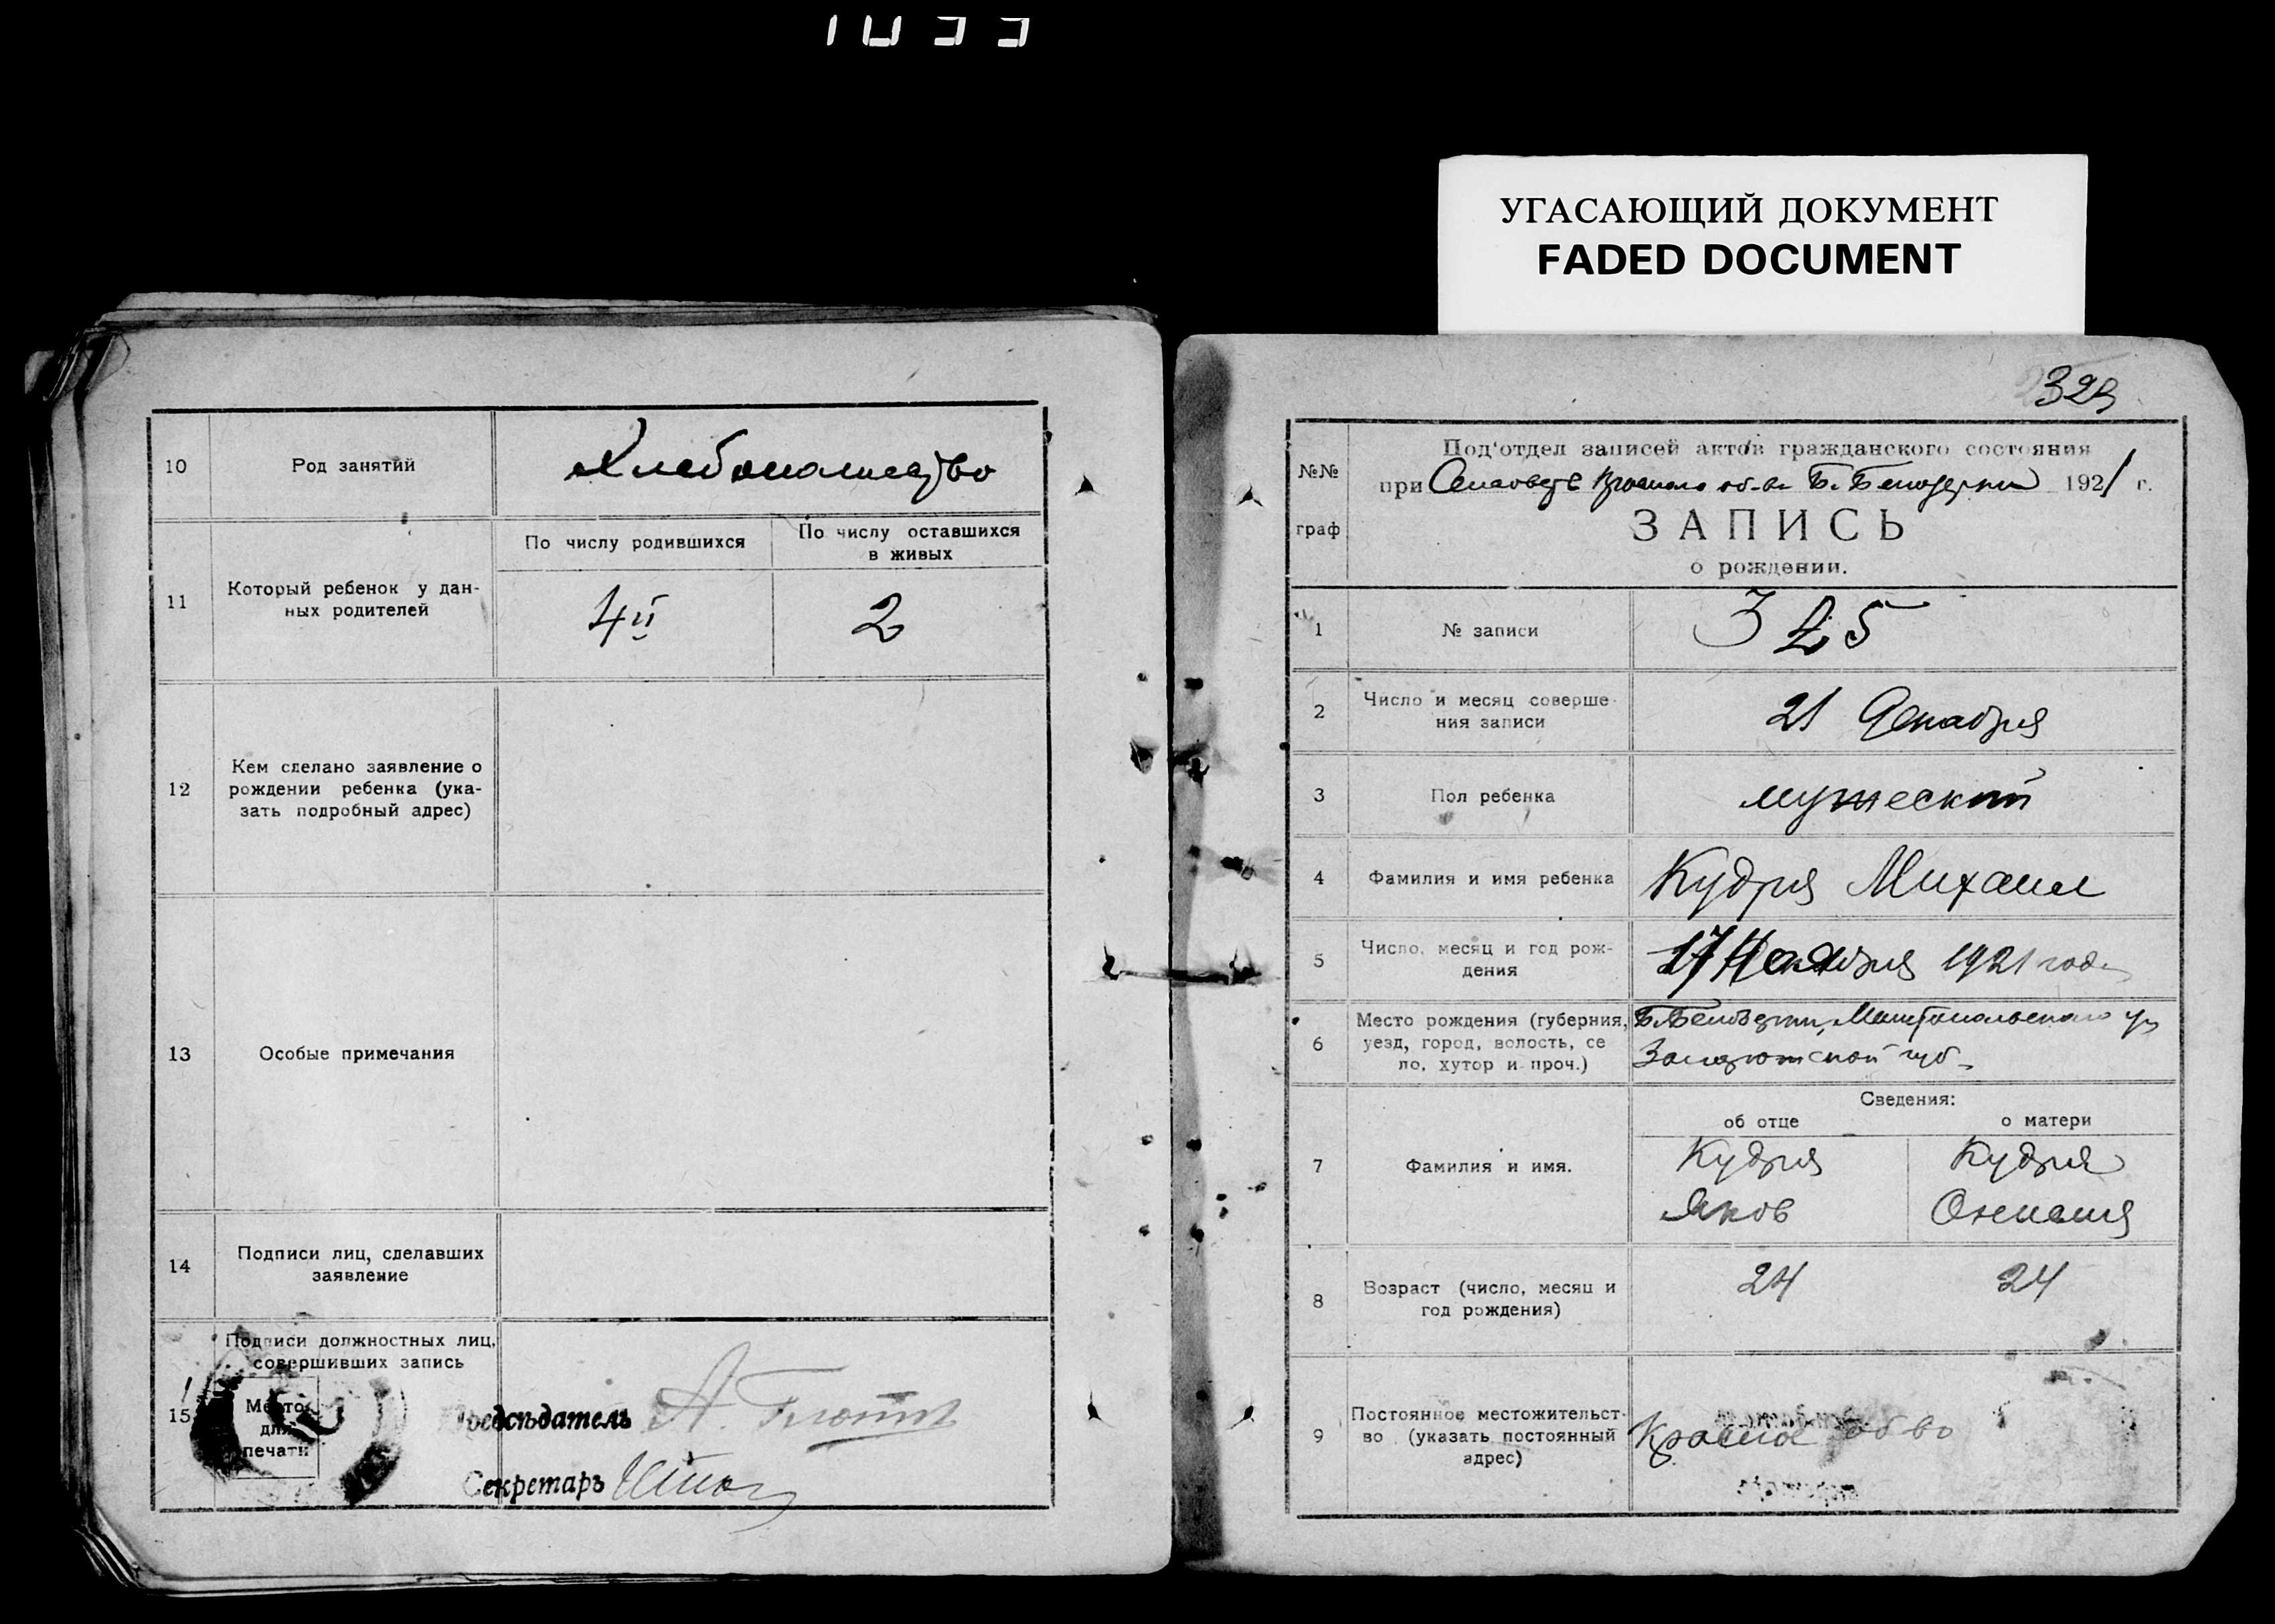 1033
УГАСАЮЩИЙ ДОКУМЕНТ
FADED DOCUMENT
10
Род занятий
Хлебопашество
11
Который ребенок у дан-
ных родителей
По числу родившихся
По числу оставшихся
в живых
4й
2
12
Кем сделано заявление о
рождении ребенка (ука-
зать подробный адрес)
13
Особые примечания
14
Подписи лиц, сделавших
заявление
15
Подписи должностных лиц,
совершивших запись
Место
для
печати
Предсѣдатель
Секретарь
329
№№
граф
Под'отдел записей актов гражданского состояния
при об-ве Б. Белозерки 1921 г.
ЗАПИСЬ
о рождении.
1
№ записи
325
2
Число и месяц соверше-
ния записи
21 Декабря
3
Пол ребенка
мужеский
4
Фамилия и имя ребенка
Кудря Михаил
5
Число, месяц и год рож-
дения
17 Ноября 1921 года
6
Место рождения (губерния,
уезд, город, волость, се
ло, хутор и проч.)
Б. Белозерки, Мелитопольского у
Запорожской губ.
Сведения:
об отце
о матери
7
Фамилия и имя.
Кудря
Яков
Кудря
8
Возраст (число, месяц и
год рождения)
24
24
9
Постоянное местожительст-
во (указать постоянный
адрес)
об во